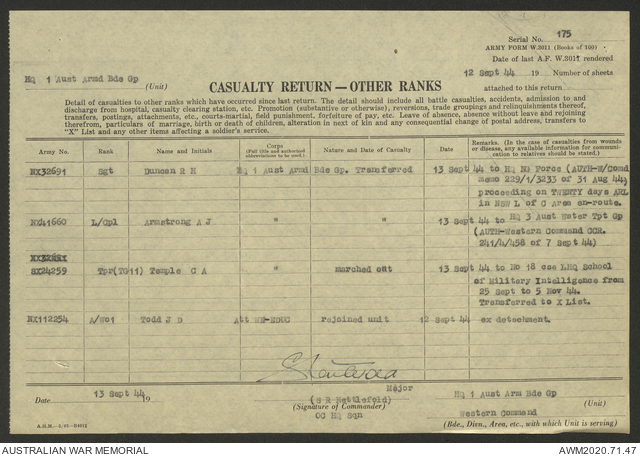 Serial No. 175
ARMY FORM W.3011 (Books of 100)
Date of last A.F. W.3011 rendered
HQ 1 Aust Armd Bde Gp
(Unit)
12 Sept 44 19 Number of sheets
CASUALTY RETURN—OTHER RANKS
attached to this return
Detail of casualties to other ranks which have occurred since last return. The detail should include all battle casualties, accidents, admission to and
discharge from hospital, casualty clearing station, etc. Promotion (substantive or otherwise), reversions, trade groupings and relinquishments thereof,
transfers, postings, attachments, etc., courts-martial, field punishment, forfeiture of pay, etc. Leave of absence, absence without leave and rejoining
therefrom, particulars of marriage, birth or death of children, alteration in next of kin and any consequential change of postal address, transfers to
"X" List and any other items affecting a soldier's service.
Army No. Rank Name and Initials Corps (Full title and authorized abbreviations to be used.) Nature and Date of Casualty Date Remarks. (In the case of casualties from wounds or disease, any available information for communication to relatives should be stated.)
NX32691 Sgt Duncan R H HQ 1 Aust Armd Bde Gp. Transferred 13 Sept 44 to HQ Force (AUTH-W/Comd
memo 229/1/3233 of 31 Aug 44)
proceeding on TWENTY days ARL
in NSW L of C Area en-route.
NX41660 L/Cpl Armstrong A J " " 13 Sept 44 to HQ 3 Aust Water Tpt Gp
(AUTH-Western Command CCR.
241/4/458 of 7 Sept 44)
SX24259 Tpr(TG11) Temple C A " marched out 13 Sept 44 to No 18 cse LHQ School
of Military Intelligence from
25 Sept to 5 Nov 44.
Transferred to X List.
NX112254 A/Wo1 Todd J D Att rejoined unit 12 Sept 44 ex detachment.
Date 13 Sept 44 19
Major
(S R Nettlefold)
(Signature of Commander)
OC HQ Sqn
HQ 1 Aust Arm Bde Gp
(Unit)
Western Command
(Bde., Divn., Area, etc., with which Unit is serving)
AUSTRALIAN WAR MEMORIAL
AWM2020.71.47